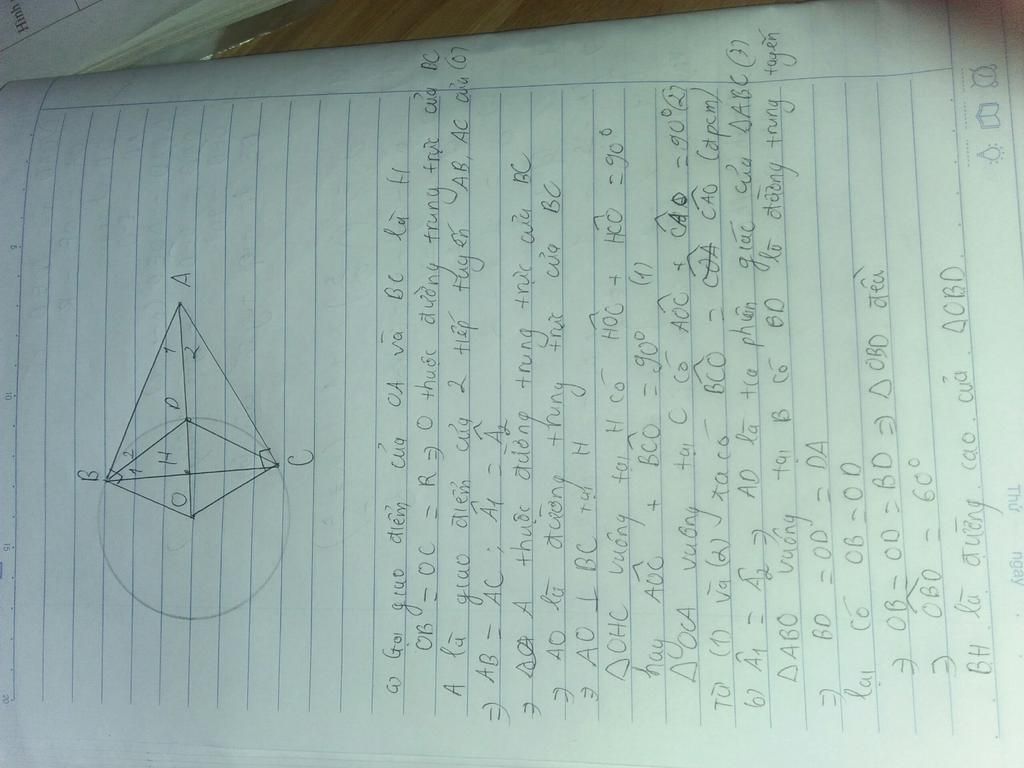 B
A
C
O
H
D
1
2
1
2
a) Gọi giao điểm của OA và BC là H
OB = OC = R ⇒ O thuộc đường trung trực của BC
A là giao điểm của 2 tiếp tuyến AB, AC của (O)
⇒ AB = AC ; Â1 = Â2
⇒ A thuộc đường trung trực của BC
⇒ AO là đường trung trực của BC
⇒ AO ⊥ BC tại H
ΔOHC vuông tại H có HÔC + HĈO = 90°
hay AÔC + BĈO = 90° (1)
ΔOCA vuông tại C có AÔC + CÂO = 90° (2)
Từ (1) và (2) ta có BĈO = CÂO (đpcm)
b) Â1 = Â2 ⇒ AD là tia phân giác của ΔABC (3)
ΔABO vuông tại B có BD là đường trung tuyến
⇒ BD = OD = DA
lại có OB = OD
⇒ OB = OD = BD ⇒ ΔOBD đều
⇒ OB̂D = 60°
BH là đường cao của ΔOBD
Thứ
Ngày
Hình
5
10
15
20